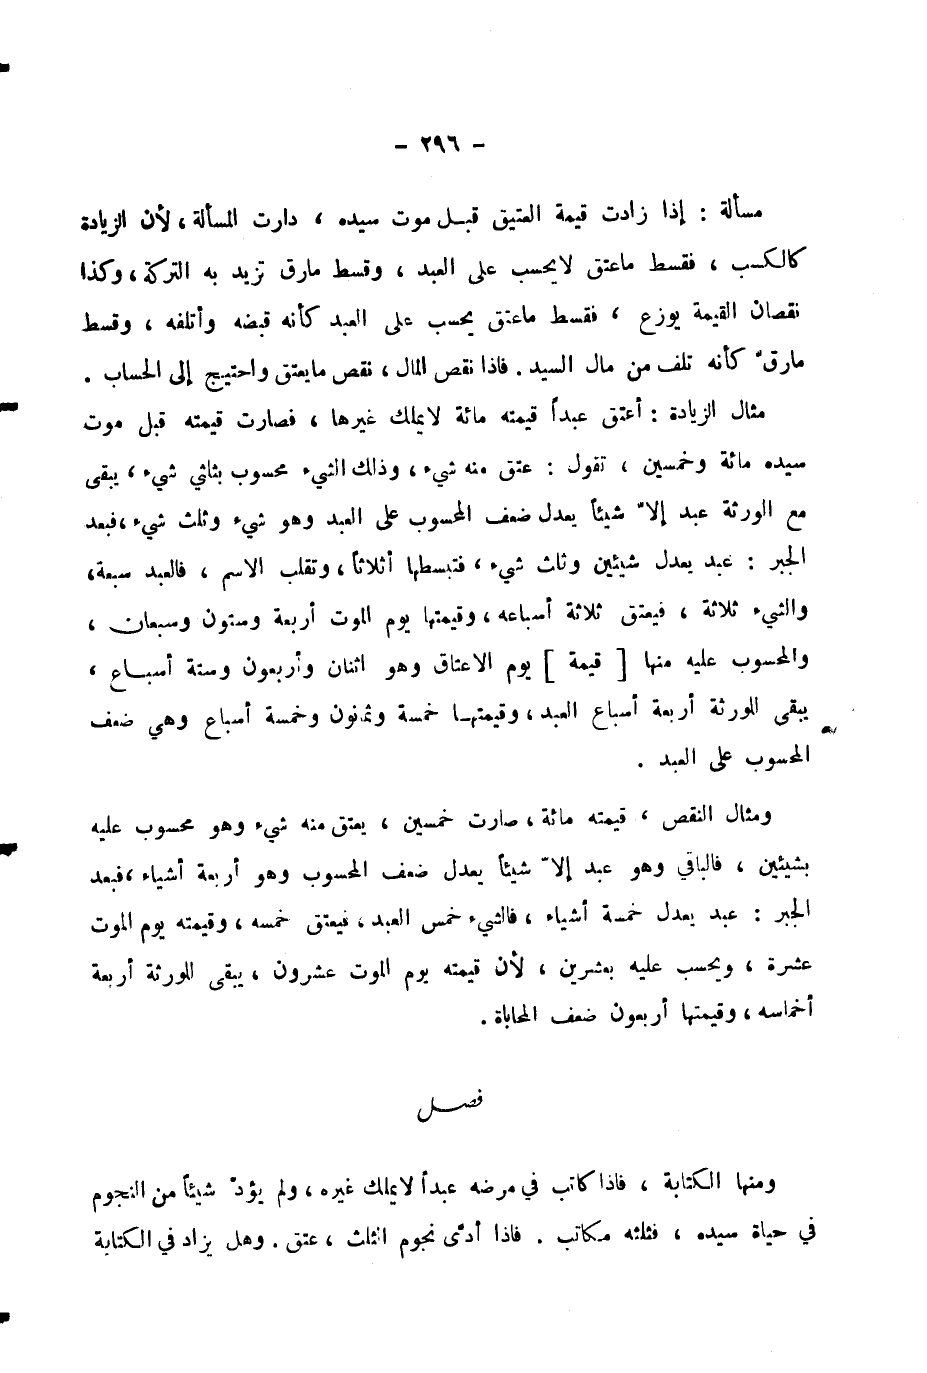 - ٢٩٦ -
مسألة : إذا زادت قيمة العتيق قبل موت سيده ، دارت المسألة ، لأن الزيادة
كالكسب ، فقسط ماعتق لايحسب على العبد ، وقسط مارق تزيد به التركة ، وكذا
نقصان القيمة يوزع ، فقسط ماعتق يحسب على العبد كأنه قبضه وأتلفه ، وقسط
مارقّ كأنه تلف من مال السيد . فاذا نقص المال ، نقص مايعتق واحتيج إلى الحساب .
مثال الزيادة : أعتق عبداً قيمته مائة لايملك غيرها ، فصارت قيمته قبل موت
سيده مائة وخمسين ، تقول : عتق منه شيء ، وذلك الشيء محسوب بثلثي شيء ، يبقى
مع الورثة عبد إلاّ شيئاً يعدل ضعف المحسوب على العبد وهو شيء وثلث شيء ، فبعد
الجبر : عبد يعدل شيئين وثلث شيء ، فتبسطها أثلاثاً ، وتقلب الاسم ، فالعبد سبعة ،
والشيء ثلاثة ، فيعتق ثلاثة أسباعه ، وقيمتها يوم الموت أربعة وستون وسبعان ،
والمحسوب عليه منها [ قيمة ] يوم الاعتاق وهو اثنان وأربعون وستة أسباع ،
يبقى للورثة أربعة أسباع العبد ، وقيمتها خمسة وثمانون وخمسة أسباع وهي ضعف
المحسوب على العبد .
ومثال النقص ، قيمته مائة ، صارت خمسين ، يعتق منه شيء وهو محسوب عليه
بشيئين ، فالباقي وهو عبد إلاّ شيئاً يعدل ضعف المحسوب وهو أربعة أشياء ، فبعد
الجبر : عبد يعدل خمسة أشياء ، فالشيء خمس العبد ، فيعتق خمسه ، وقيمته يوم الموت
عشرة ، ويحسب عليه بعشرين ، لأن قيمته يوم الموت عشرون ، يبقى للورثة أربعة
أخماسه ، وقيمتها أربعون ضعف المحاباة .
فصل
ومنها الكتابة ، فاذا كاتب في مرضه عبداً لايملك غيره ، ولم يؤدّ شيئاً من النجوم
في حياة سيده ، فثلثه مكاتب . فاذا أدّى نجوم الثلث ، عتق . وهل يزاد في الكتابة